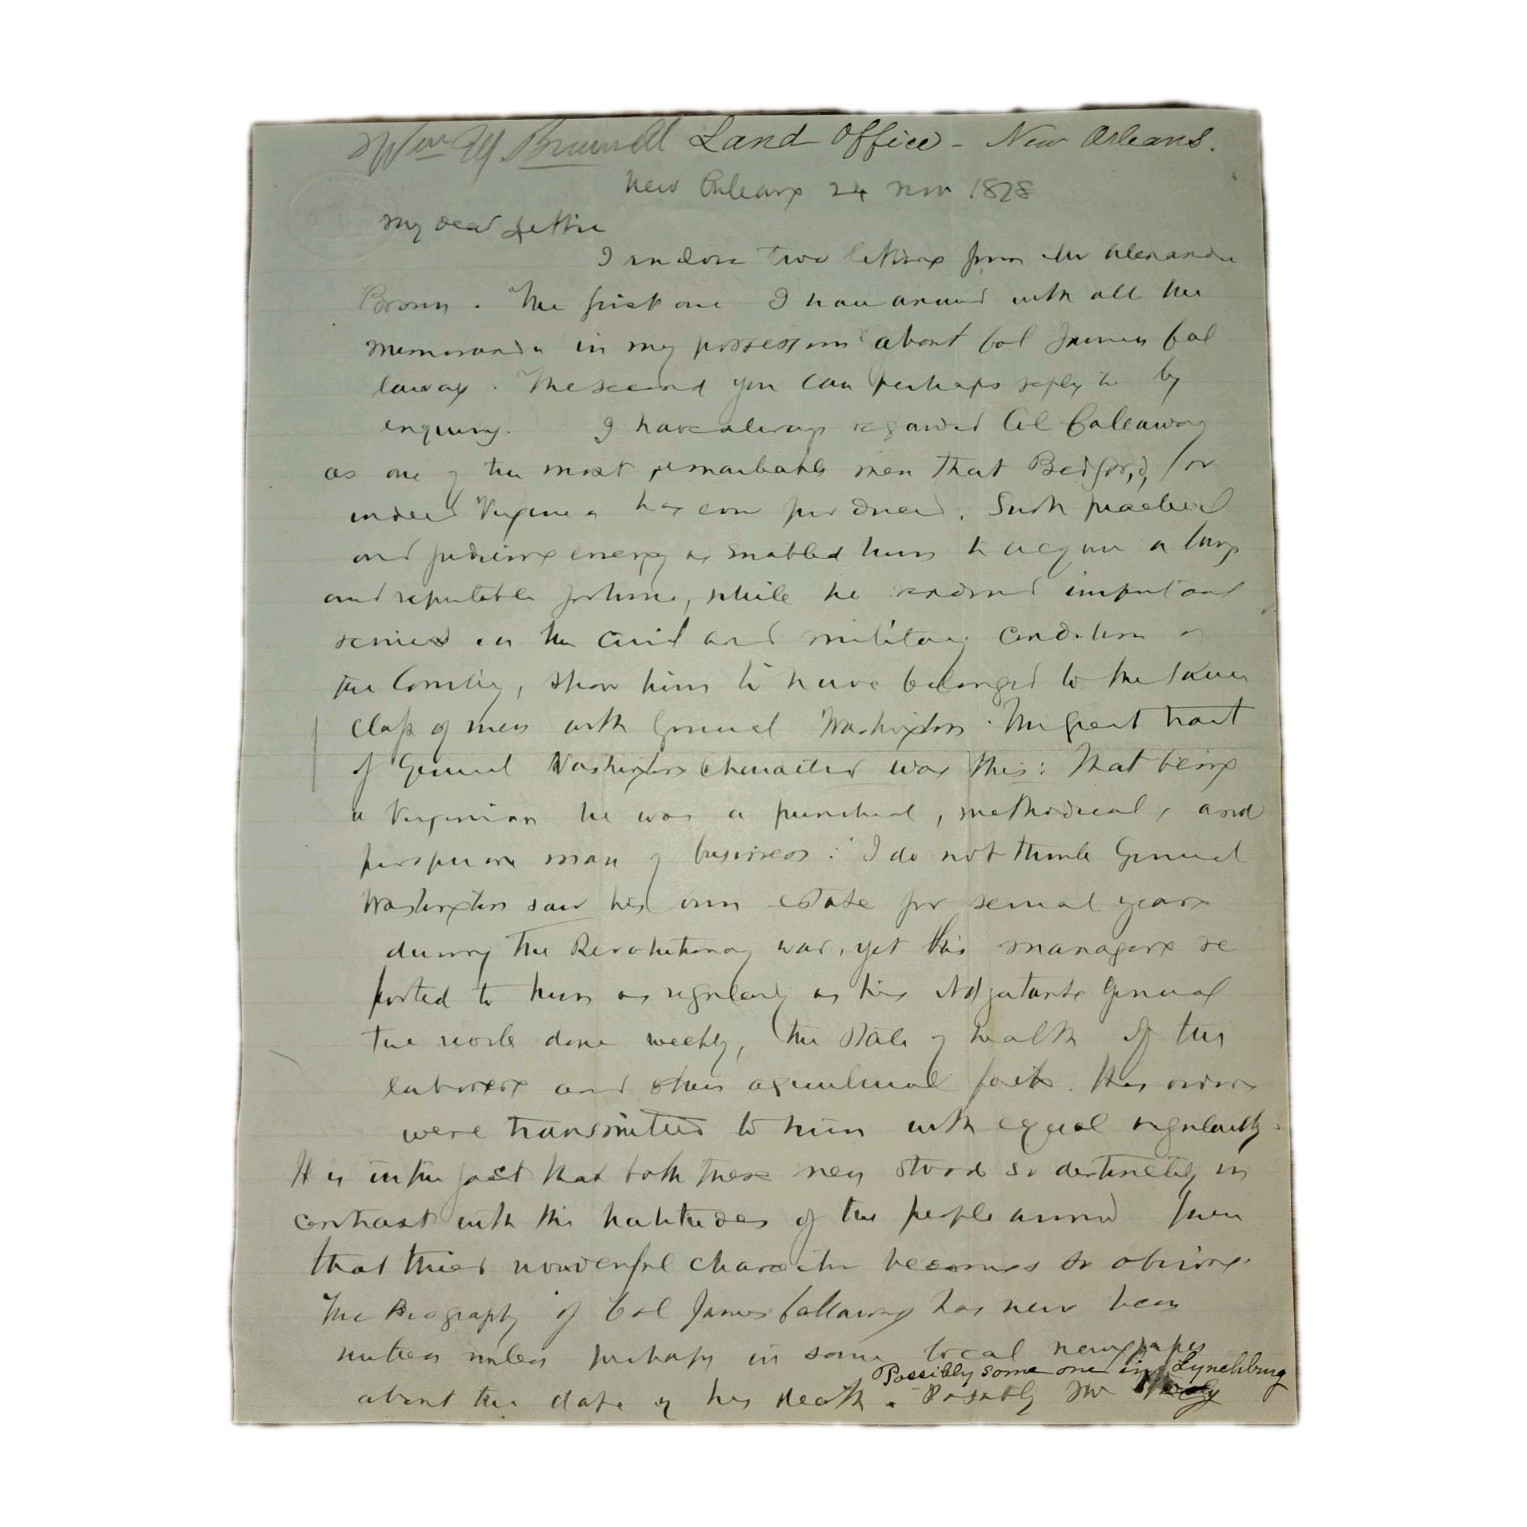 Wm M. Burwell Land Office - New Orleans.
New Orleans 24 Nov 1878
My dear Lettie
I enclose two letters from Mr Alexander
Brown. The first one I have answered with all the
memoranda in my possession about Col James Cal
laway. The second you can perhaps reply to by
enquiry. I have always regarded Col Callaway
as one of the most remarkable men that Bedford, or
indeed Virginia has ever produced. Such practical
and judicious energy as enabled him to acquire a large
and reputable fortune, while he rendered important
services in the civil and military condition of
the Country, show him to have belonged to the same
class of men with General Washington. The great trait
of General Washingtons character was this: That being
a Virginian he was a punctual, methodical, and
man of business. I do not think General
Washington saw his own estate for several years
during the Revolutionary war, yet his managers re
ported to him as regularly as his Adjutants General
the work done weekly, the state of health of the
laborers and other agricultural facts. His orders
were transmitted to him with equal regularity.
It is in the fact that both these men stood so distinctly in
contrast with the habitudes of the people around them
that their wonderful character becomes so obvious.
The Biography of Col James Callaway has never been
written unless perhaps in some local newspaper
Possibly some one in Lynchburg
about the date of his death. Possibly Mr